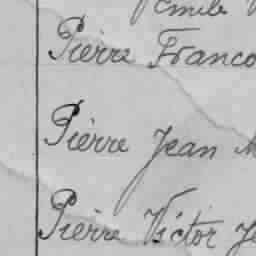 Emile
Pierre Franco
Pierre Jean M
Pierre Victor Je